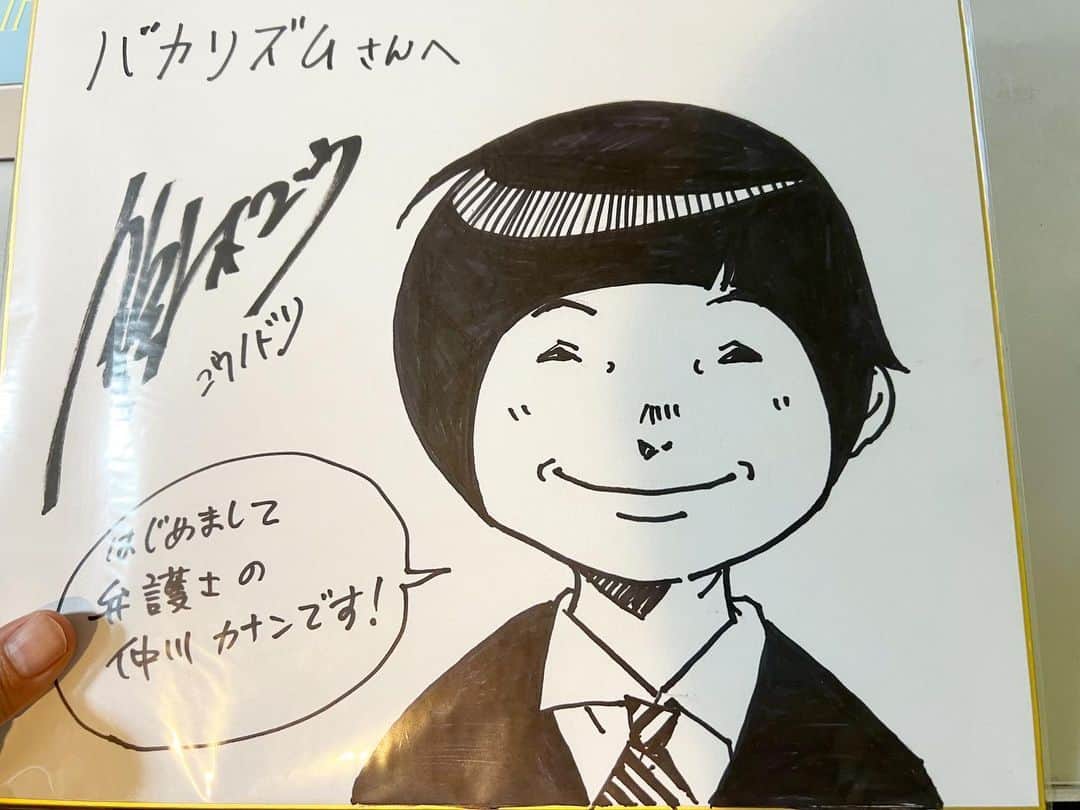 バカリズムさんへ
コウノドリ
はじめまして
弁護士の
仲川カナンです!